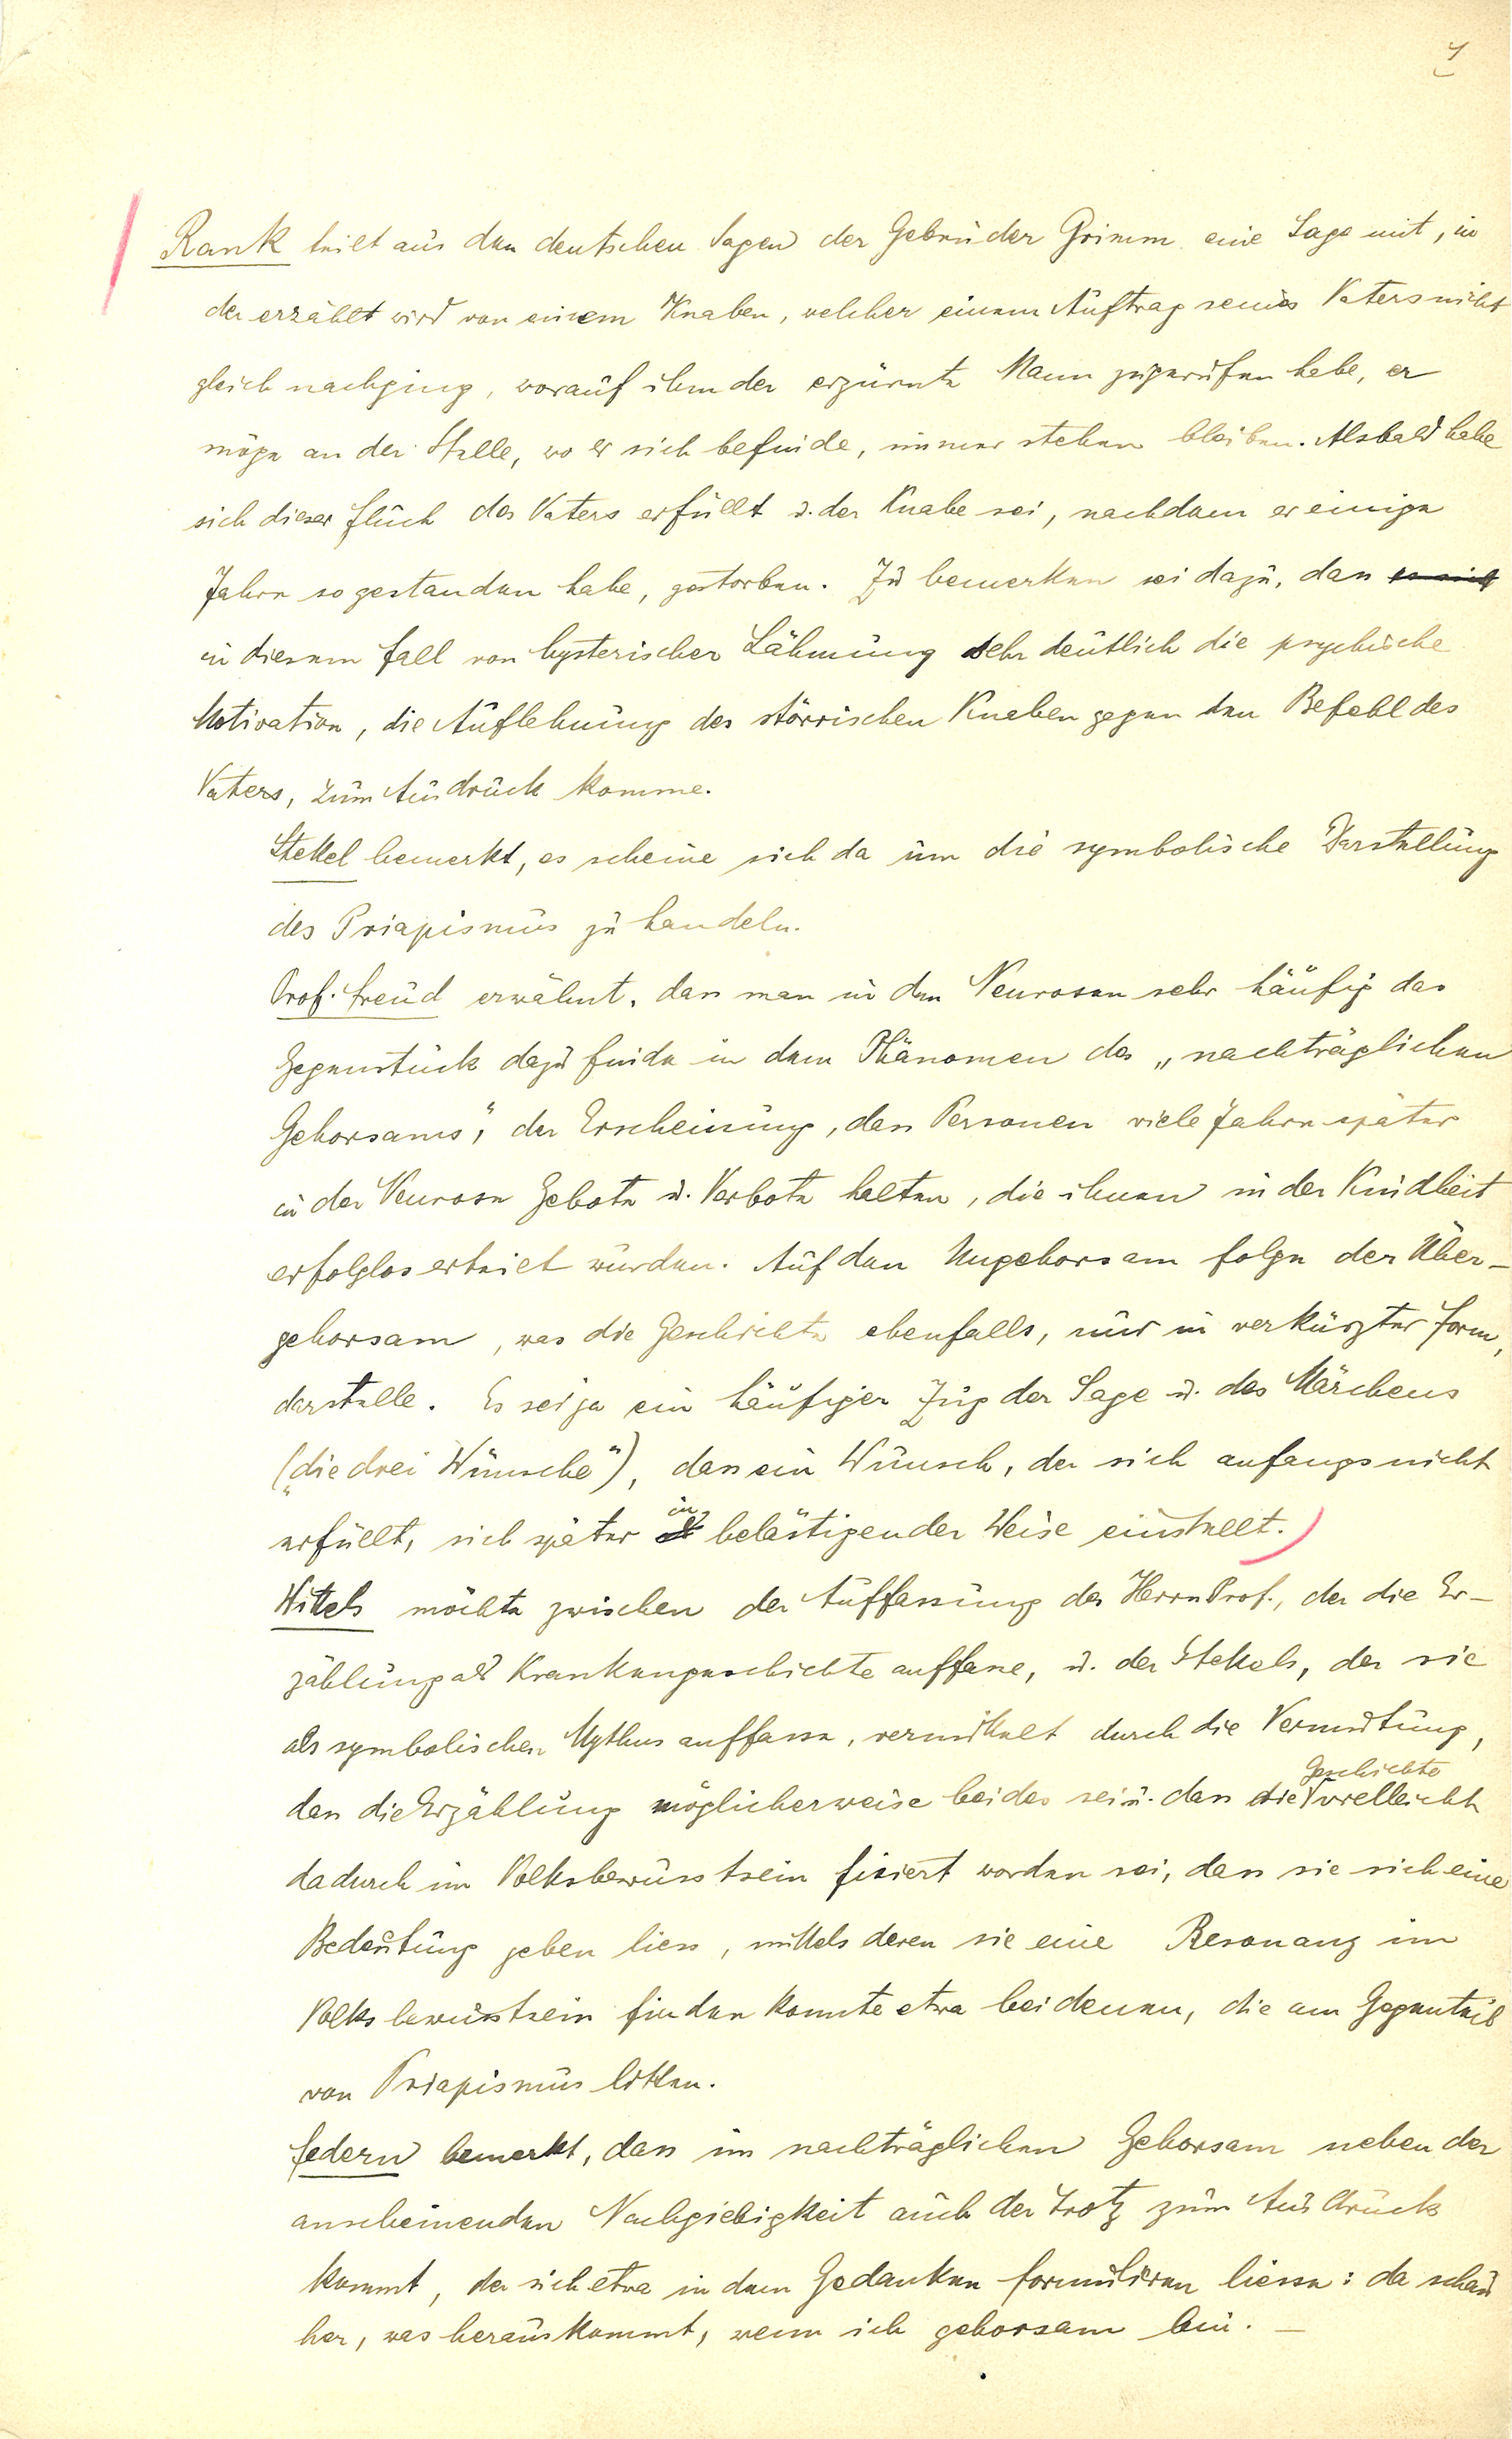 4
Rank teilt aus den deutschen Sagen der Gebrüder Grimm eine Sage mit, in
der erzählt wird von einem Knaben, welcher einem Auftrag seines Vaters nicht
gleich nachging, worauf ihm der erzürnte Mann zugerufen habe, er
möge an der Stelle, wo er sich befinde, immer stehen bleiben. Alsbald habe
sich dieser Fluch des Vaters erfüllt u. der Knabe sei, nachdem er einige
Jahre so gestanden habe, gestorben. Zu bemerken sei dazu, dass
in diesem Fall von hysterischer Lähmung sehr deutlich die psychische
Motivation, die Auflehnung des störrischen Knaben gegen den Befehl des
Vaters, zum Ausdruck komme.
Stekel bemerkt, es scheine sich da um die symbolische Darstellung
des Priapismus zu handeln.
Prof. Freud erwähnt, dass man in den Neurosen sehr häufig das
Gegenstück dazu finde in dem Phänomen des „nachträglichen
Gehorsams", der Erscheinung, dass Personen viele Jahre später
in der Neurose Gebote u. Verbote halten, die ihnen in der Kindheit
erfolglos erteilt wurden. Auf den Ungehorsam folge der Über-
gehorsam, was die Geschichte ebenfalls, nur in verkürzter Form,
darstelle. Es sei ja ein häufiger Zug der Sage u. des Märchens
(„die drei Wünsche"), dass ein Wunsch, der sich anfangs nicht
erfüllt, sich später in belästigender Weise einstellt.
Wittels möchte zwischen der Auffassung des Herrn Prof., der die Er-
zählung als Krankengeschichte auffasse, u. der Stekels, der sie
als symbolischen Mythus auffasse, vermittelt durch die Vermutung,
dass die Erzählung möglicherweise beides sei u. dass die Geschichte vielleicht
dadurch im Volksbewusstsein fixiert worden sei, dass sie sich eine
Bedeutung geben liess, mittels deren sie eine Resonanz im
Volksbewusstsein finden konnte etwa bei denen, die am Gegenteil
von Priapismus litten.
Federn bemerkt, dass im nachträglichen Gehorsam neben der
anscheinenden Nachgiebigkeit auch der Trotz zum Ausdruck
kommt, der sich etwa in dem Gedanken formulieren liesse: da schau
her, was herauskommt, wenn ich gehorsam bin. –